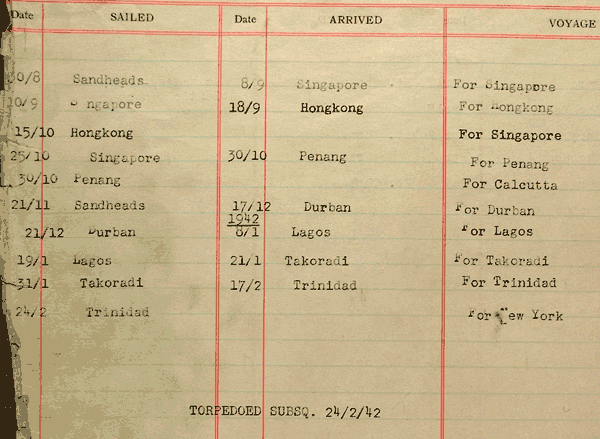 Date SAILED Date ARRIVED VOYAGE
30/8 Sandheads 8/9 Singapore For Singapore
10/9 Singapore 18/9 Hongkong For Hongkong
15/10 Hongkong For Singapore
25/10 Singapore 30/10 Penang For Penang
30/10 Penang For Calcutta
21/11 Sandheads 17/12 Durban For Durban
1942
21/12 Durban 8/1 Lagos For Lagos
19/1 Lagos 21/1 Takoradi For Takoradi
31/1 Takoradi 17/2 Trinidad For Trinidad
24/2 Trinidad For New York
TORPEDOED SUBSQ. 24/2/42